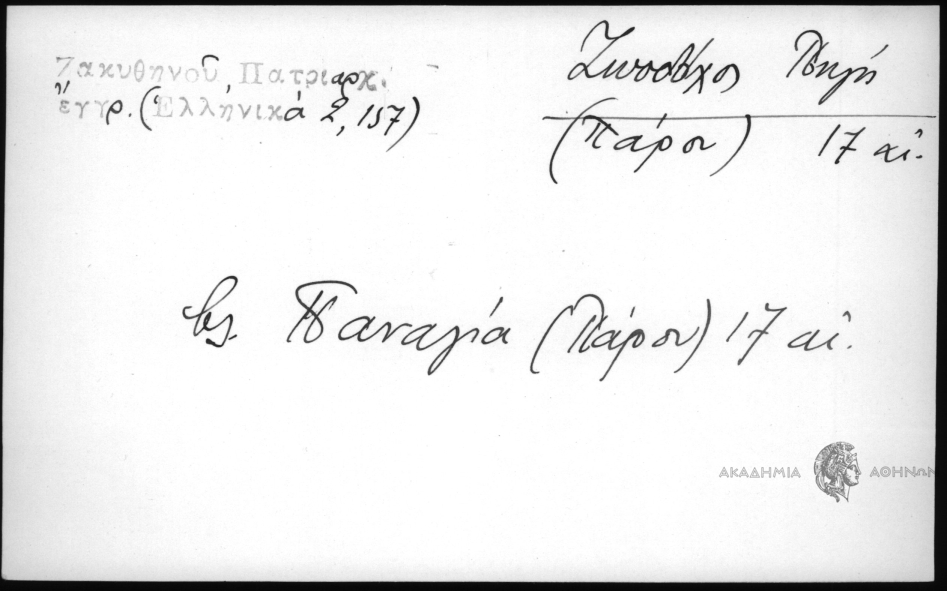 Ζακυθηνοῦ, Πατριαρχ.
ἔγγρ. (Ἑλληνικά 2, 157)
Ζωοδόχος Πηγή
(Πάρου) 17 αἰ.
βλ. Παναγία (Πάρου) 17 αἰ.
ΑΚΑΔΗΜΙΑ ΑΘΗΝΩΝ